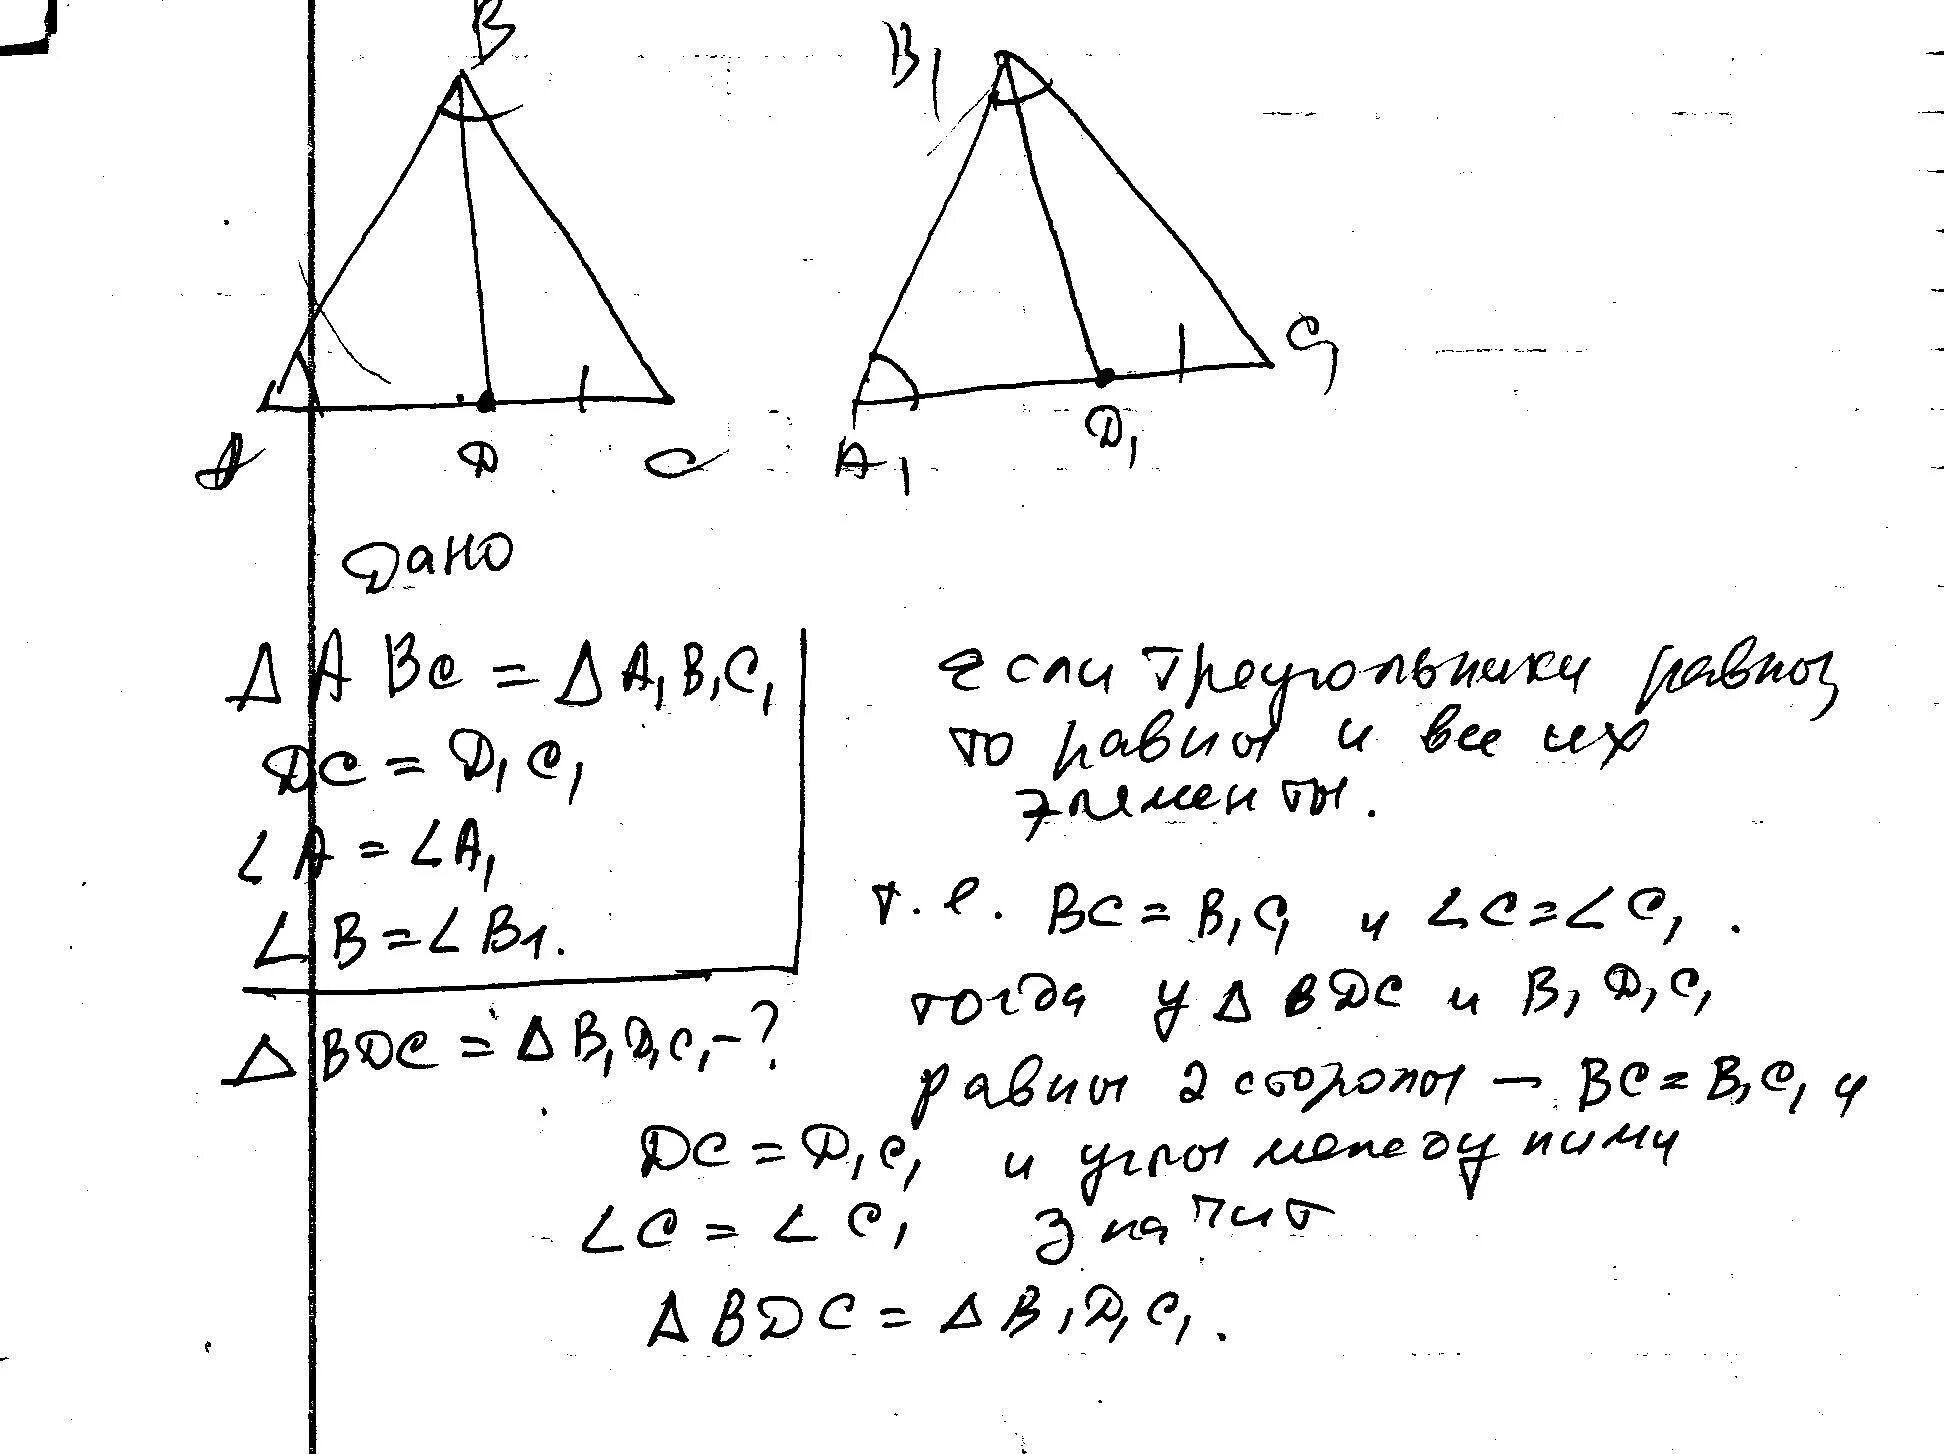 B
B₁
C₁
D₁
A D C
A₁
Дано
Δ ABC = Δ A₁B₁C₁
DC = D₁C₁
∠A = ∠A₁
∠B = ∠B1.
Δ BDC = Δ B₁D₁C₁ - ?
если треугольники равны
то равны и все их
элементы.
т.е. BC = B₁C₁ и ∠C = ∠C₁.
тогда у Δ BDC и B₁D₁C₁
равны 2 стороны — BC = B₁C₁ и
DC = D₁C₁ и углы между ними
∠C = ∠C₁ значит
Δ BDC = Δ B₁D₁C₁.